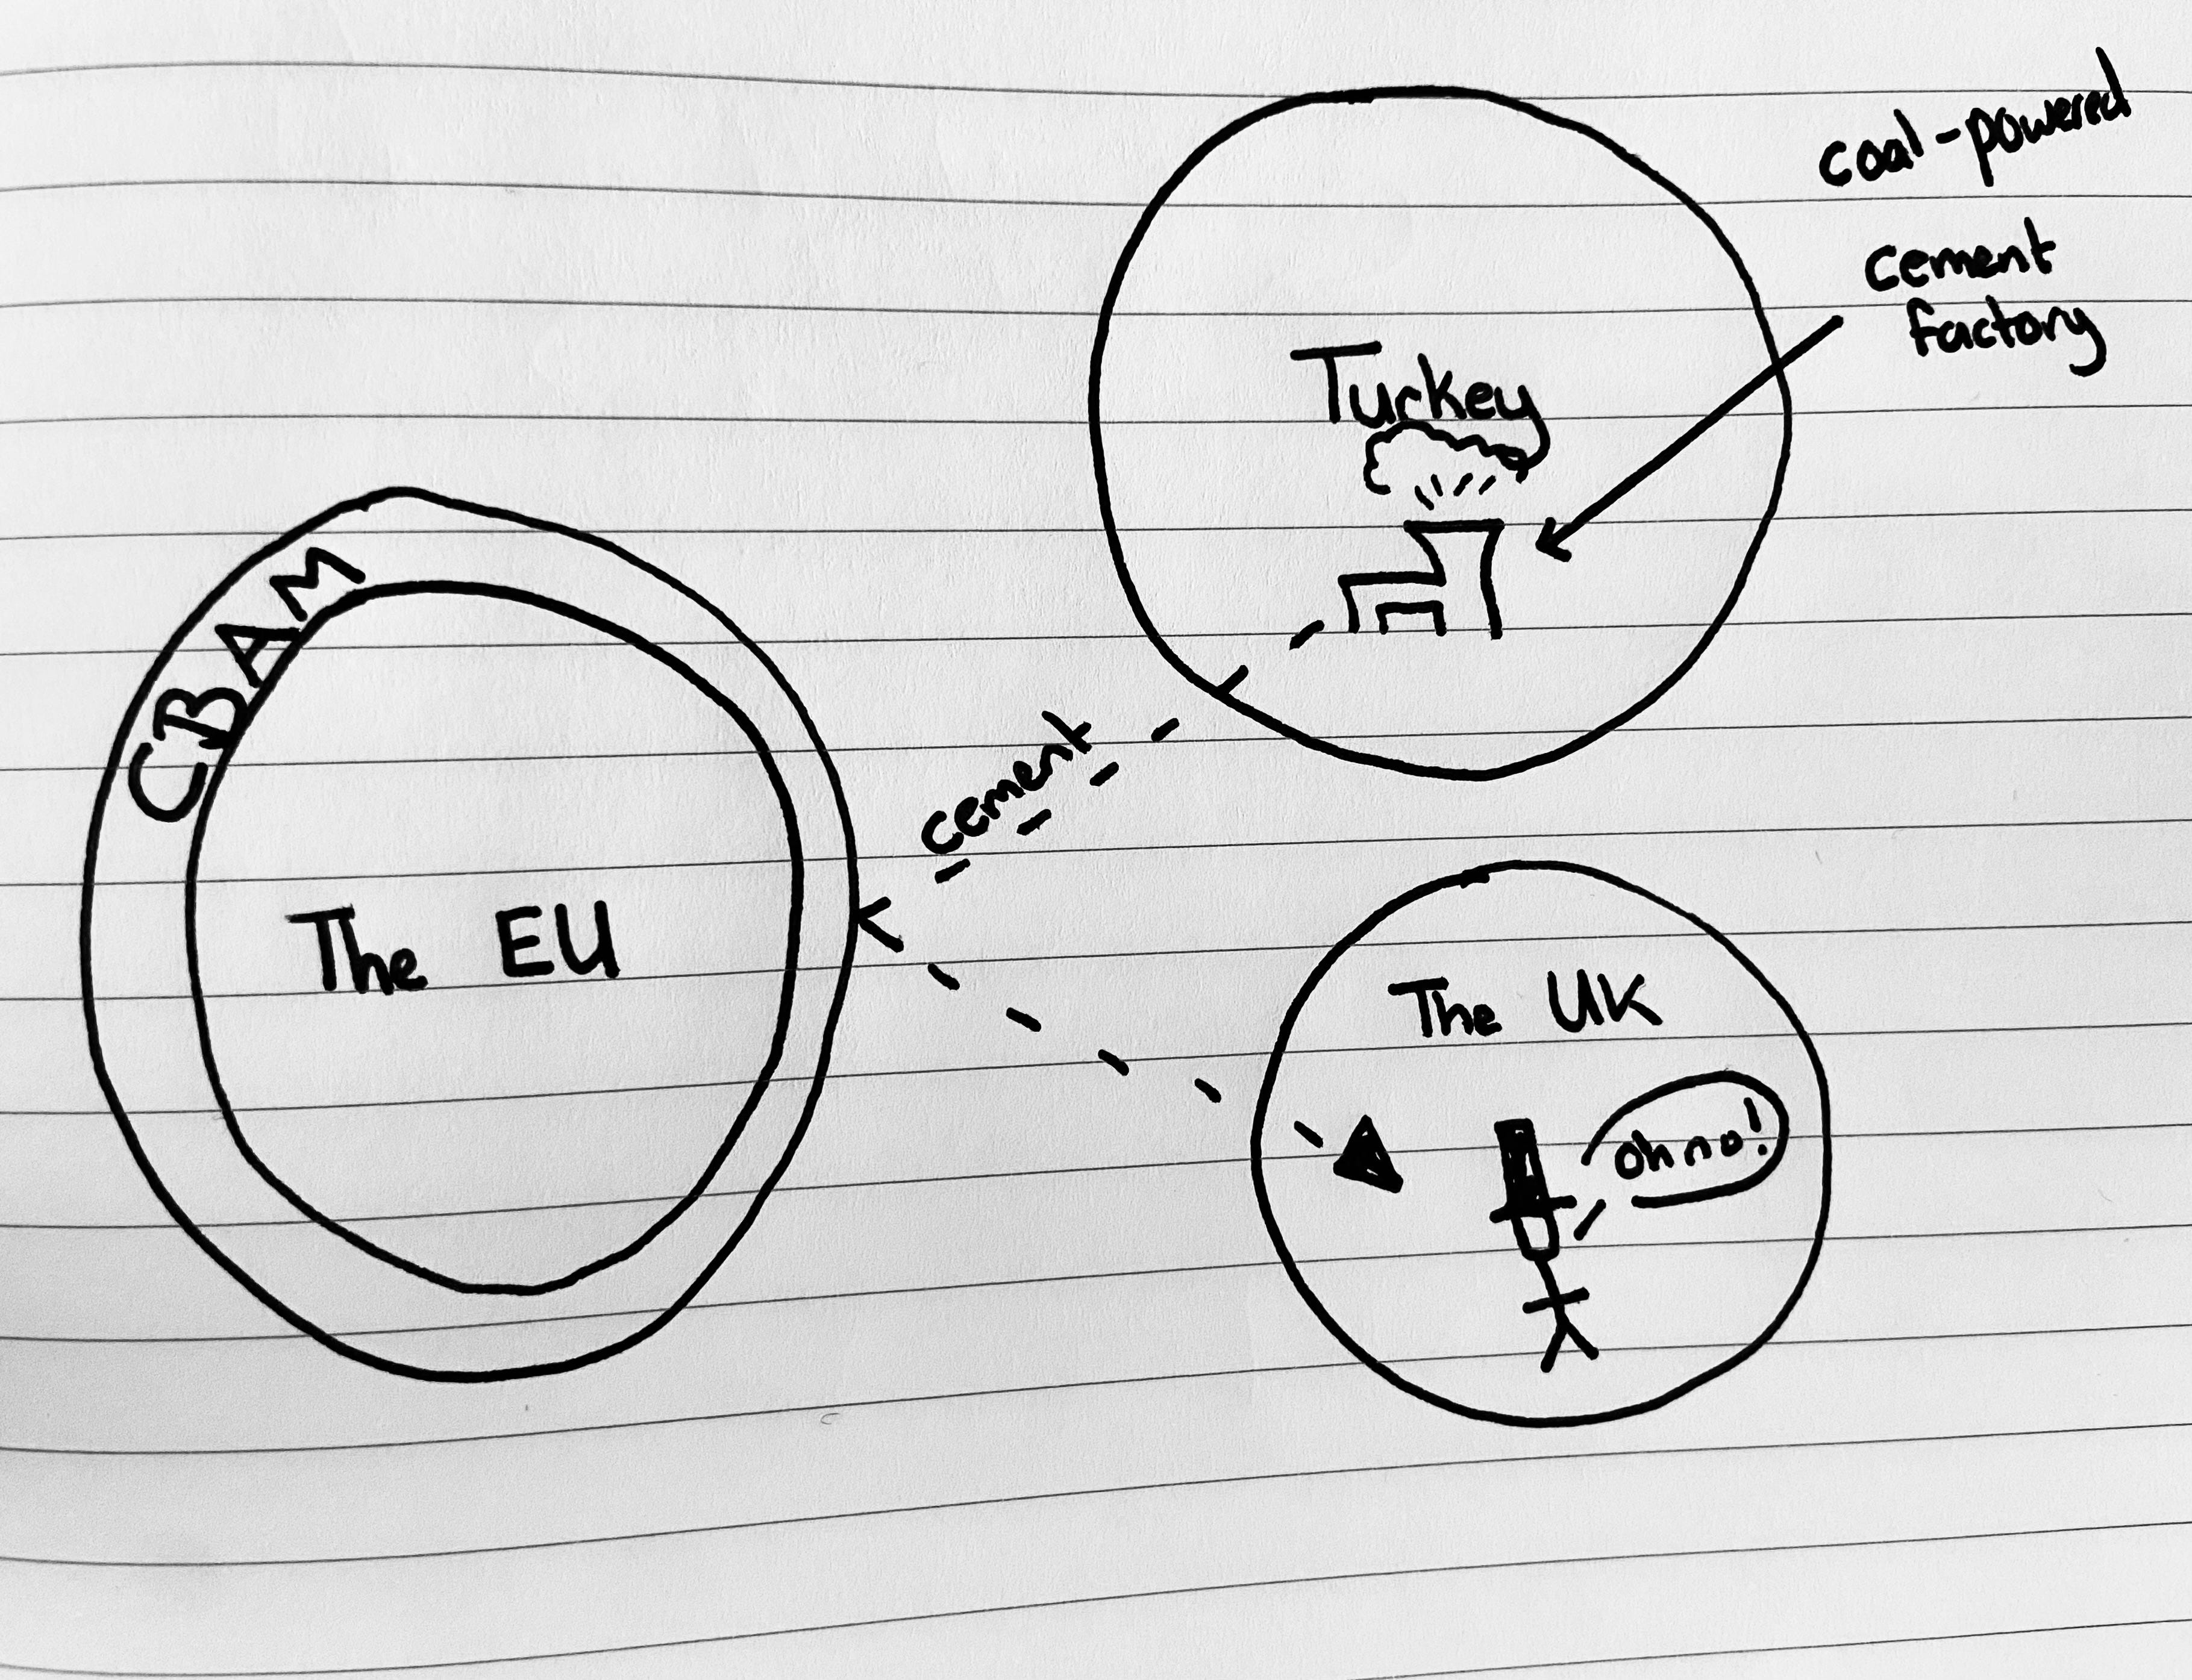 coal-powered
cement
factory
Turkey
CBAM
cement
The EU
The UK
oh no!